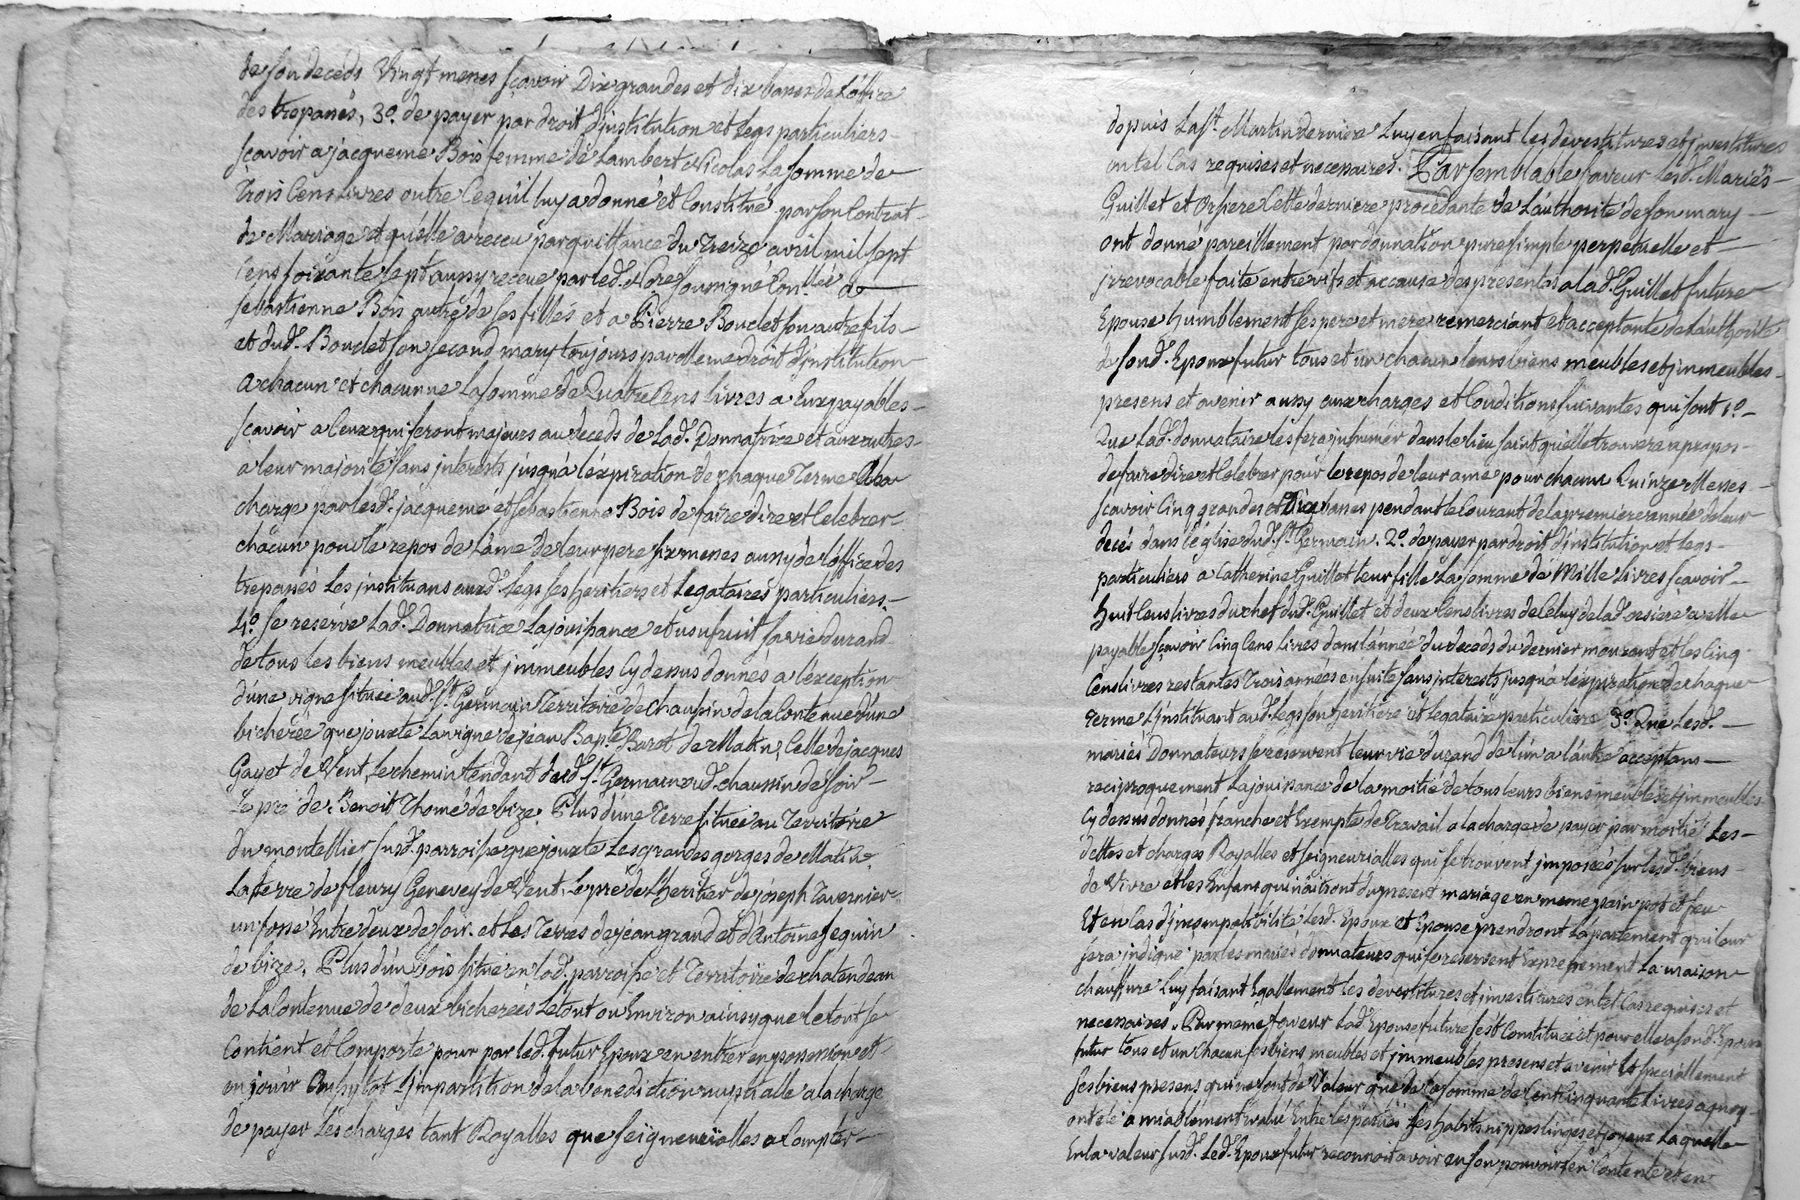 de son decéds Vingt messes sçavoir Dix grandes et dix basses de L'office
des trepassés, 3.º de payer par droit d'institution et Legs particuliers
sçavoir a jacqueme Bois femme de Lambert Nicolas La somme de
Trois Cens Livres outre Ce qu'il luy a donné et Constitué par son Contrat
de Mariage et qu'elle a reccu par quittance du Treize avril mil sept
Cens soixante sept aussy recçue par led. No.re soussigné a
sebastienne Bois autre de ses filles et a Pierre Bouclet son autre fils
et dud. Bouclet son second mary toujours par même droit d'institution
a chacun et chacunne La somme de Quatre Cens livres a Eux payables
sçavoir a Ceux qui seront majeurs au deceds de Lad. Donnatrice et aux autres
a leur majorité sans interests jusqu'à l'expiration de chaque Terme a la
charge par lesd. jacqueme et sebastienne Bois de faire dire et Celebrer
chacun pour le repos de L'ame de leur pere six messes aussy de l'office des
trepassés Les instituans auxd. Legs ses heritiers et Legataires particuliers
4.º se reserve Lad. Donnatrice La jouissance et usufruit sa vie durand
de tous les biens meubles et jmmeubles Cy dessus donnés a l'exception
d'une vigne située aud. S.t Germain Territoire de chaussin de la Contenue d'une
bicherée que jouxte La vigne de jean Bap.te Barot de Matin, Celle de jacques
Gayet de Vent, Le chemin tendant dud. S.t Germain aud. chaussin de soir
Le pré de Benoit Thomé de bize. Plus d'une Terre située au Territoire
du montellier susd. parroisse que jouxte Les grandes gorges de Matin,
La terre de fleury Genevey de Vent, Le pré de L'heritier de joseph Tavernier
un fossé Entre deux de soir. et Les Terres de jean grand et d'Antoine seguin
de bize, Plus d'un bois situé en Lad. parroisse et Territoire de chatendean
de La Contenue de deux bicherées Le tout ou Environ ainsy que le tout se
Contient et Comporte pour par led. futur Epoux en entrer en possession et
en jouir aussytot L'impartition de la benediction nuptialle a la charge
de payer Les charges tant Royalles que seigneurialles a Compter
depuis La S.t Martin derniere Luy en faisant les devestitures et jnvestitures
en tel Cas requises et necessaires. Par semblable faveur Lesd. Mariés
Guillet et Orsiere Cette derniere procedante de L'authorité de son mary
ont donné pareillement par donnation pure simple perpetuelle et
jrrevocable faite entre vifs et a cause des presentes a lad. Guillet future
Epouse humblement ses pere et mere remerciant et acceptante de L'authorité
de sond. Epoux futur tous et un chacun leurs biens meubles et jmmeubles
presens et avenir aussy aux charges et Conditions suivantes qui sont 1.º
Que Lad. donnataire les fera jnhumer dans le lieu saint qu'elle trouvera a propos
de faire dire et Celebrer pour le repos de leur ame pour chacun Quinze Messes
sçavoir Cinq grandes et Dix basses pendant le Courant de la premiere année de leur
decés dans l'église dud. S.t Germain. 2.º de payer par droit d'institution et legs
particuliers a Catherine Guillet leur fille La somme de Mille Livres sçavoir
huit Cens livres du chef dud. Guillet et deux Cens livres de Celuy de lad. orsiere a elle
payable sçavoir Cinq Cens Livres dans l'année du deceds du dernier mourant et les Cinq
Cens livres restantes Trois années ensuite sans interests jusqu'à l'expiration de chaque
Terme L'instituant aud. Legs son heritiere et legataire particuliere 3.º Que Lesd.
mariés Donnateurs se reservent leur vie durand de l'un a l'autre acceptans
reciproquement La jouissance de la moitié de tous leurs biens meubles et jmmeubles
Cy dessus donnés franche et Exempte de Travail a la charge de payer par moitié Les
dettes et charges Royalles et seigneurialles qui se trouvent jmposées sur lesd. biens
de Vivre et les Enfans qui naitront du present mariage en meme pain pot et feu
Et en Cas d'jncompatibilité Lesd. Epoux et Epouse prendront L'apartement qui leur
sera indiqué par les mariés donnateurs qui se reservent Expressement La maison
chauffure Luy faisant Egallement les devestitures et jnvestitures en tel Cas requises et
necessaires. Par meme faveur Lad. Epouse future s'est Constituée et pour elle a sond. Epoux
futur tous et un chacun ses biens meubles et jmmeubles presens et avenir Et speciallement
ses biens presens qui ne sont de Valeur que de La somme de Cent Cinquante Livres a quoy
ont été amiablement évalué Entre les parties ses habits nippes linges et joyeux Laquelle
En la valeur susd. Led. Epoux futur reconnoit avoir en son pouvoir s'en Contente et en